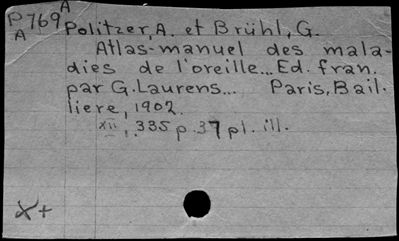 A
P769 Politzer, A. et Brühl, G.
A
Atlas-manuel des mala-
dies de l'oreille... Ed. fran.
par G. Laurens... Paris, Bail-
liere, 1902.
XII, 335 p. 37 pl. ill.
X+